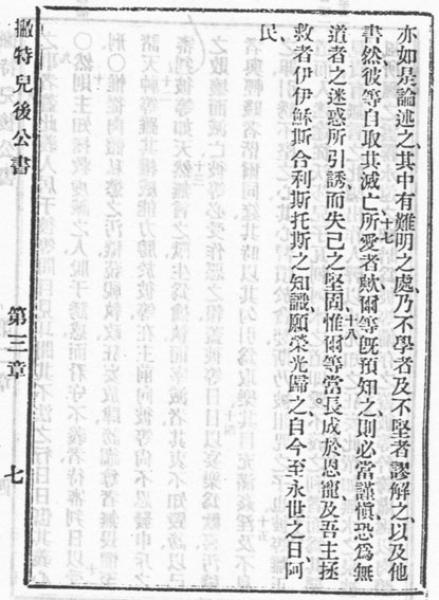 亦如是論述之、其中有難明之處、乃不學者及不堅者謬解之、以及他
書然、彼等自取其滅亡、十七所愛者歟、爾等既預知之、則必當謹愼、恐為無
道者之迷惑所引誘、而失己之堅固、十八惟爾等當長成於恩寵、及吾主拯
救者伊伊穌斯合利斯托斯之知識、願榮光歸之、自今至永世之日、阿
民、
撾特兒後公書
第三章
七